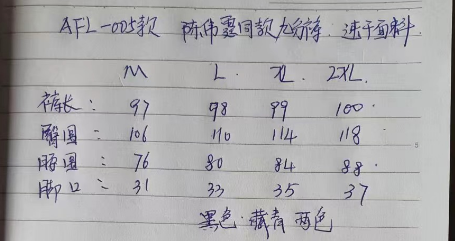 AFL-005款 陈伟霆同款九分裤 速干面料.
M L. XL. 2XL.
裤长: 97 98 99 100.
臀围: 106 110 114 118
腰围: 76 80 84 88.
脚口: 31 33 35 37
黑色·藏青 两色